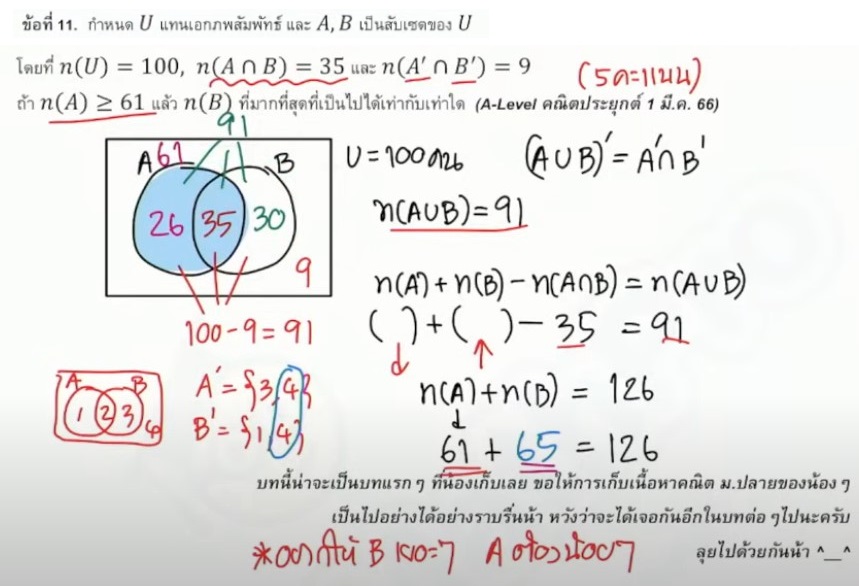 ข้อที่ 11. กำหนด U แทนเอกภพสัมพัทธ์ และ A, B เป็นสับเซตของ U
โดยที่ n(U) = 100, n(A ∩ B) = 35 และ n(A′ ∩ B′) = 9
(5คะแนน)
ถ้า n(A) ≥ 61 แล้ว n(B) ที่มากที่สุดที่เป็นไปได้เท่ากับเท่าใด (A-Level คณิตประยุกต์ 1 มี.ค. 66)
91
A 61 B
26 35 30
9
100-9=91
U=100คน
(A∪B)′=A′∩B′
n(A∪B)=91
n(A)+n(B)-n(A∩B)=n(A∪B)
( )+( )-35 =91
n(A)+n(B)= 126
61+65=126
A B
1 2 3
4
A′={3,4}
B′={1,4}
บทนี้น่าจะเป็นบทแรก ๆ ที่น้องเก็บเลย ขอให้การเก็บเนื้อหาคณิต ม.ปลายของน้อง ๆ
เป็นไปอย่างได้อย่างราบรื่นน้า หวังว่าจะได้เจอกันอีกในบทต่อ ๆไปนะครับ
ลุยไปด้วยกันน้า ^__^
*อยากให้ B เยอะๆ A ต้องน้อยๆ